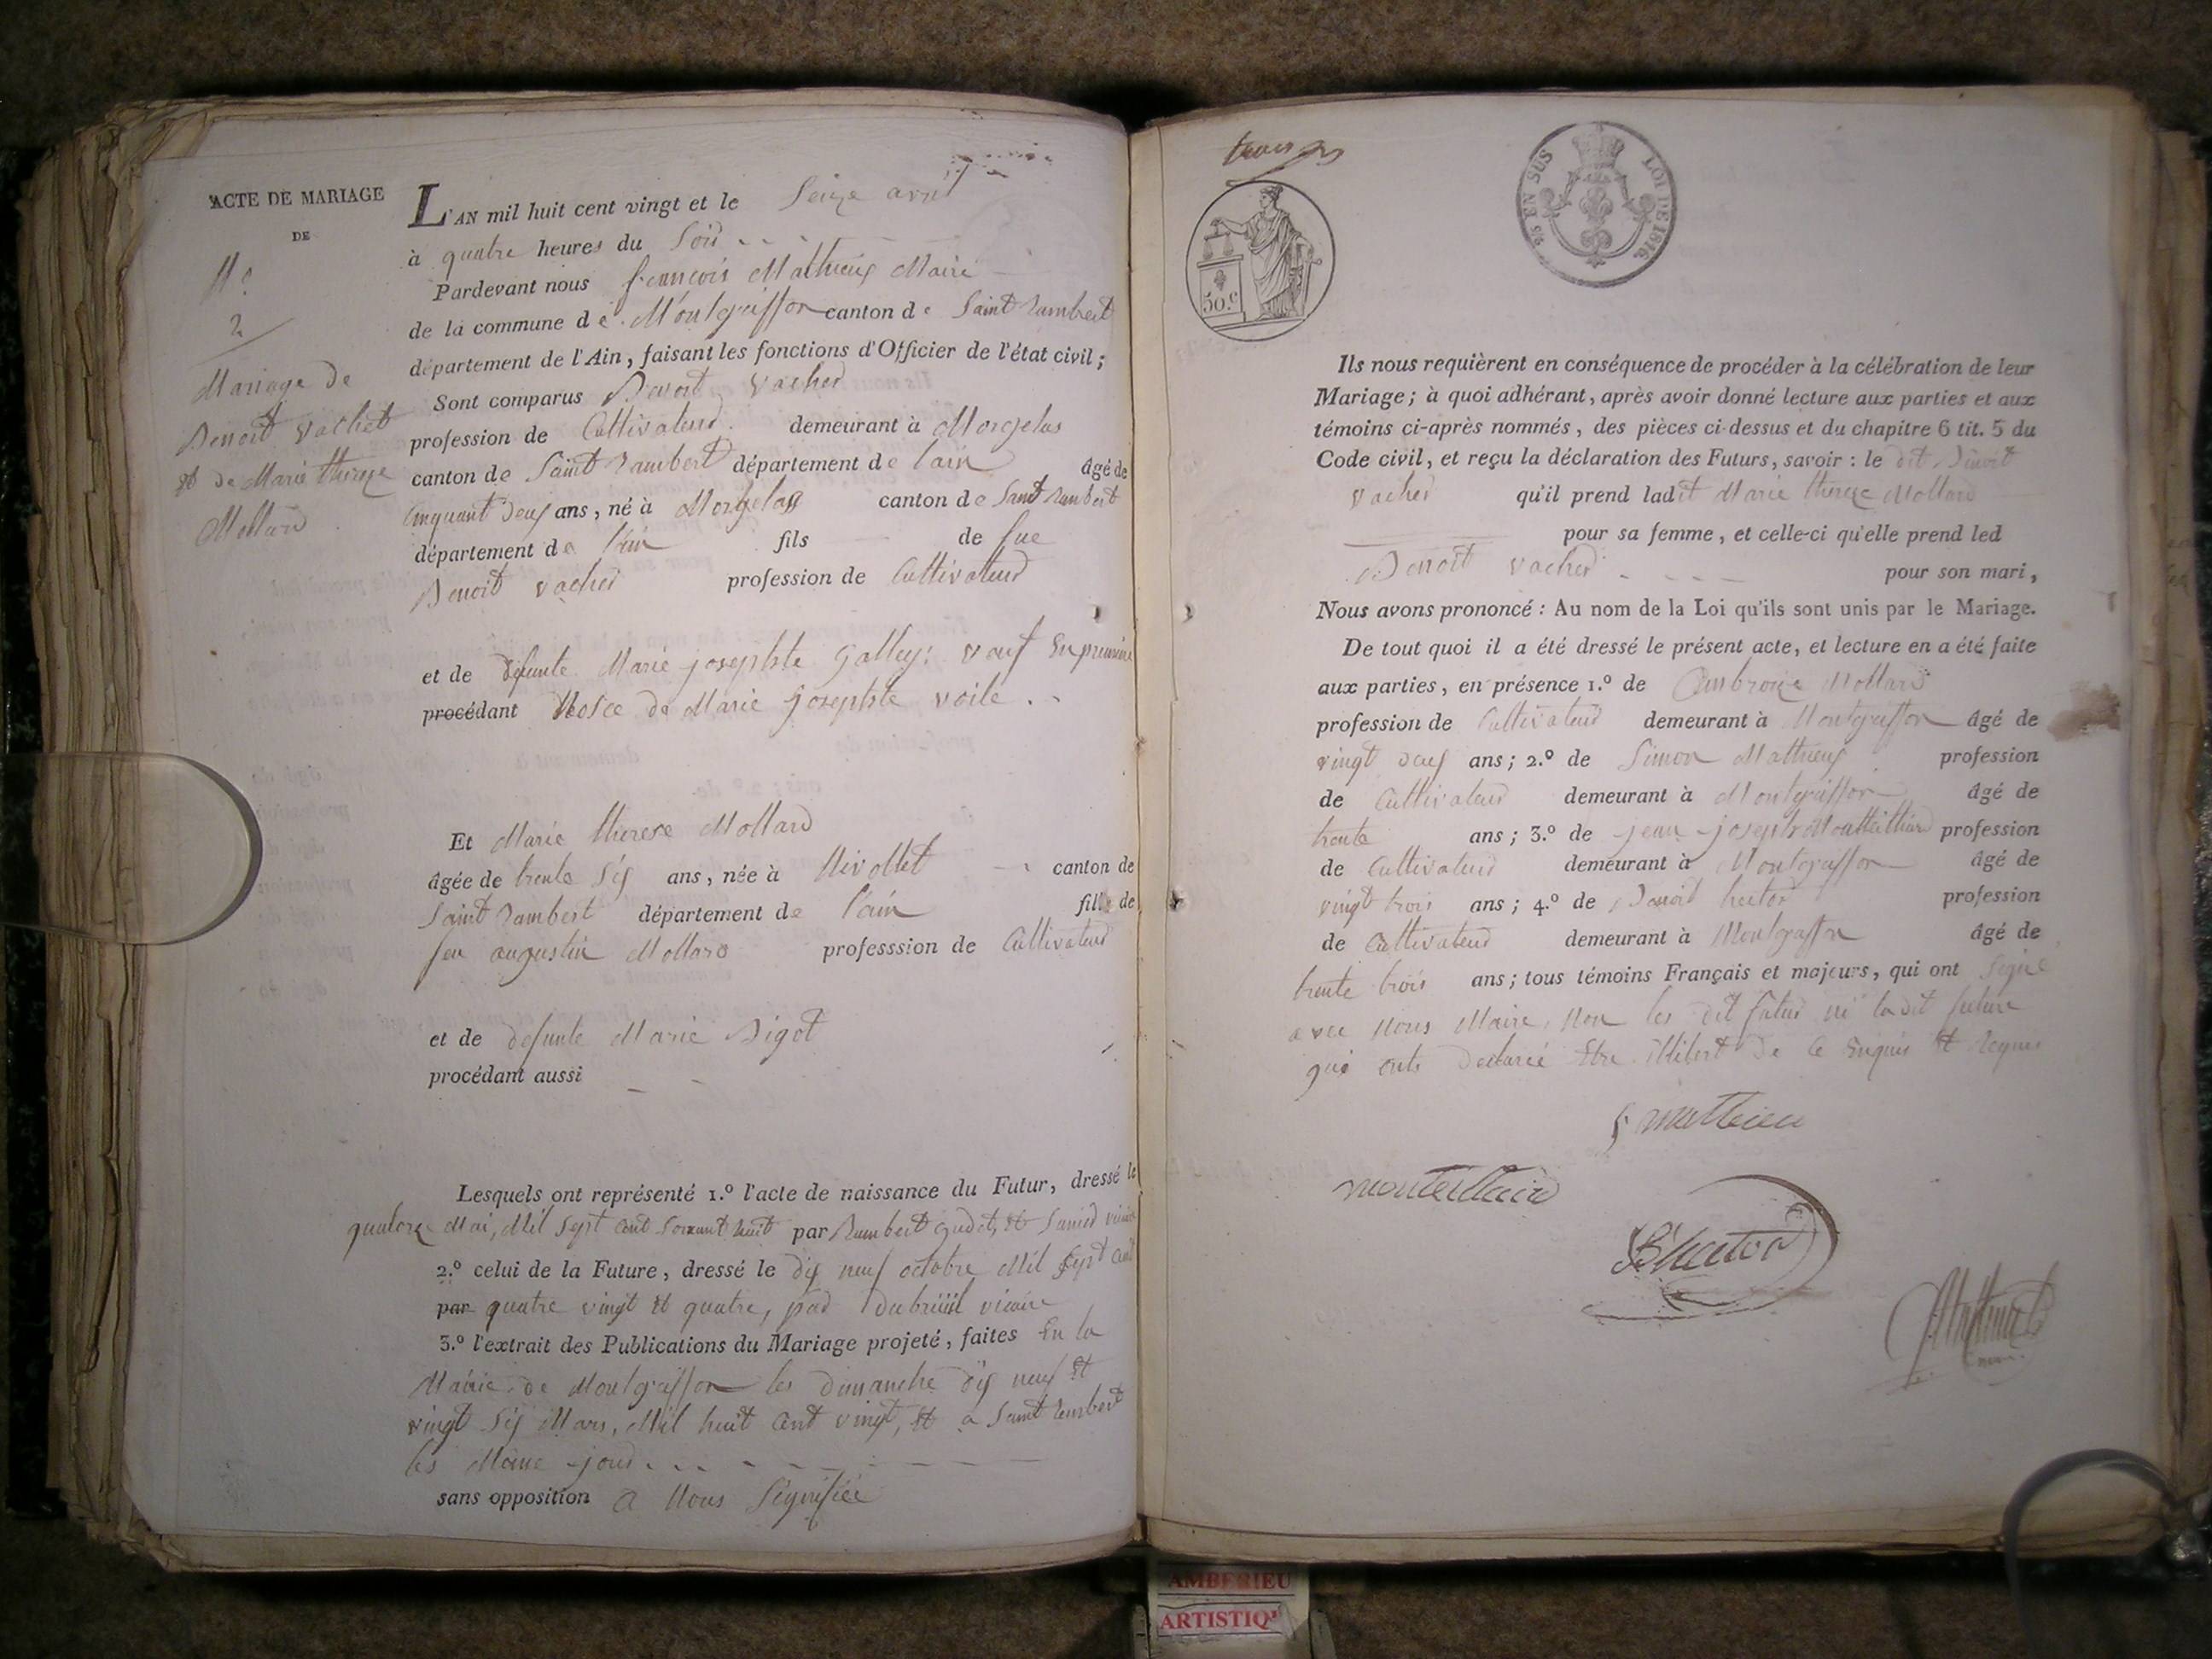 ACTE DE MARIAGE
DE
N.o
2
Mariage de
Benoit Vachet
et de Marie therese
Mollard
L'AN mil huit cent vingt et le Seize avril
à quatre heures du Soir
Pardevant nous françois Mathieux Maire
de la commune de Montgriffon canton de Saint Rambert
département de l'Ain, faisant les fonctions d'Officier de l'état civil ;
Sont comparus Benoit Vacher
profession de Cultivateur demeurant à Morgelas
canton de Saint Rambert département de l'ain âgé de
Cinquant deux ans, né à Morgelas canton de Saint Rambert
département de l'ain fils de fue
Benoit Vacher profession de Cultivateur
et de defunte Marie josephte Galley: veuf En premiere
procédant Nosce de Marie josephte voile
Et Marie therese Mollard
âgée de trente Six ans, née à Nivollet canton de
Saint Rambert département de l'ain fille de
feu augustin Mollard professsion de Cultivateur
et de defunte Marie Bigot
procédant aussi
Lesquels ont représenté 1.º l'acte de naissance du Futur, dressé le
quatorze Mai, Mil Sept Cent Soixant huit par Rambert vicaire
2.º celui de la Future, dressé le dix neuf octobre Mil Sept Cent
par quatre vingt et quatre, par dubreüil vicaire
3.º l'extrait des Publications du Mariage projeté, faites En la
Mairie de Montgriffon les dimanche dix neuf et
vingt Six Mars, Mil huit Cent vingt, et a Saint Rambert
les Même jour
sans opposition a Nous Signifiée
50.c
25 EN SUS LOI DE 1816.
Ils nous requièrent en conséquence de procéder à la célébration de leur
Mariage ; à quoi adhérant, après avoir donné lecture aux parties et aux
témoins ci-après nommés, des pièces ci-dessus et du chapitre 6 tit. 5 du
Code civil, et reçu la déclaration des Futurs, savoir : le dit Benoit
Vacher qu'il prend ladit Marie therese Mollard
pour sa femme, et celle-ci qu'elle prend led
Benoit Vacher pour son mari,
Nous avons prononcé : Au nom de la Loi qu'ils sont unis par le Mariage.
De tout quoi il a été dressé le présent acte, et lecture en a été faite
aux parties, en présence 1.º de Ambroize Mollard
profession de Cultivateur demeurant à Montgriffon âgé de
vingt deux ans ; 2.º de Simon Mathieux profession
de Cultivateur demeurant à Montgriffon âgé de
trente ans ; 3.º de jean joseph Monteilliard profession
de Cultivateur demeurant à Montgriffon âgé de
vingt trois ans ; 4.º de Benoit hector profession
de Cultivateur demeurant à Montgriffon âgé de
trente trois ans ; tous témoins Français et majeurs, qui ont Signé
avec Nous Maire, Non les dit futur ni ladit future
qui onts declarée Etre Illitert de Ce Enquis et Requis
S mathieu
B hector
AMBERIEU
ARTISTIQ